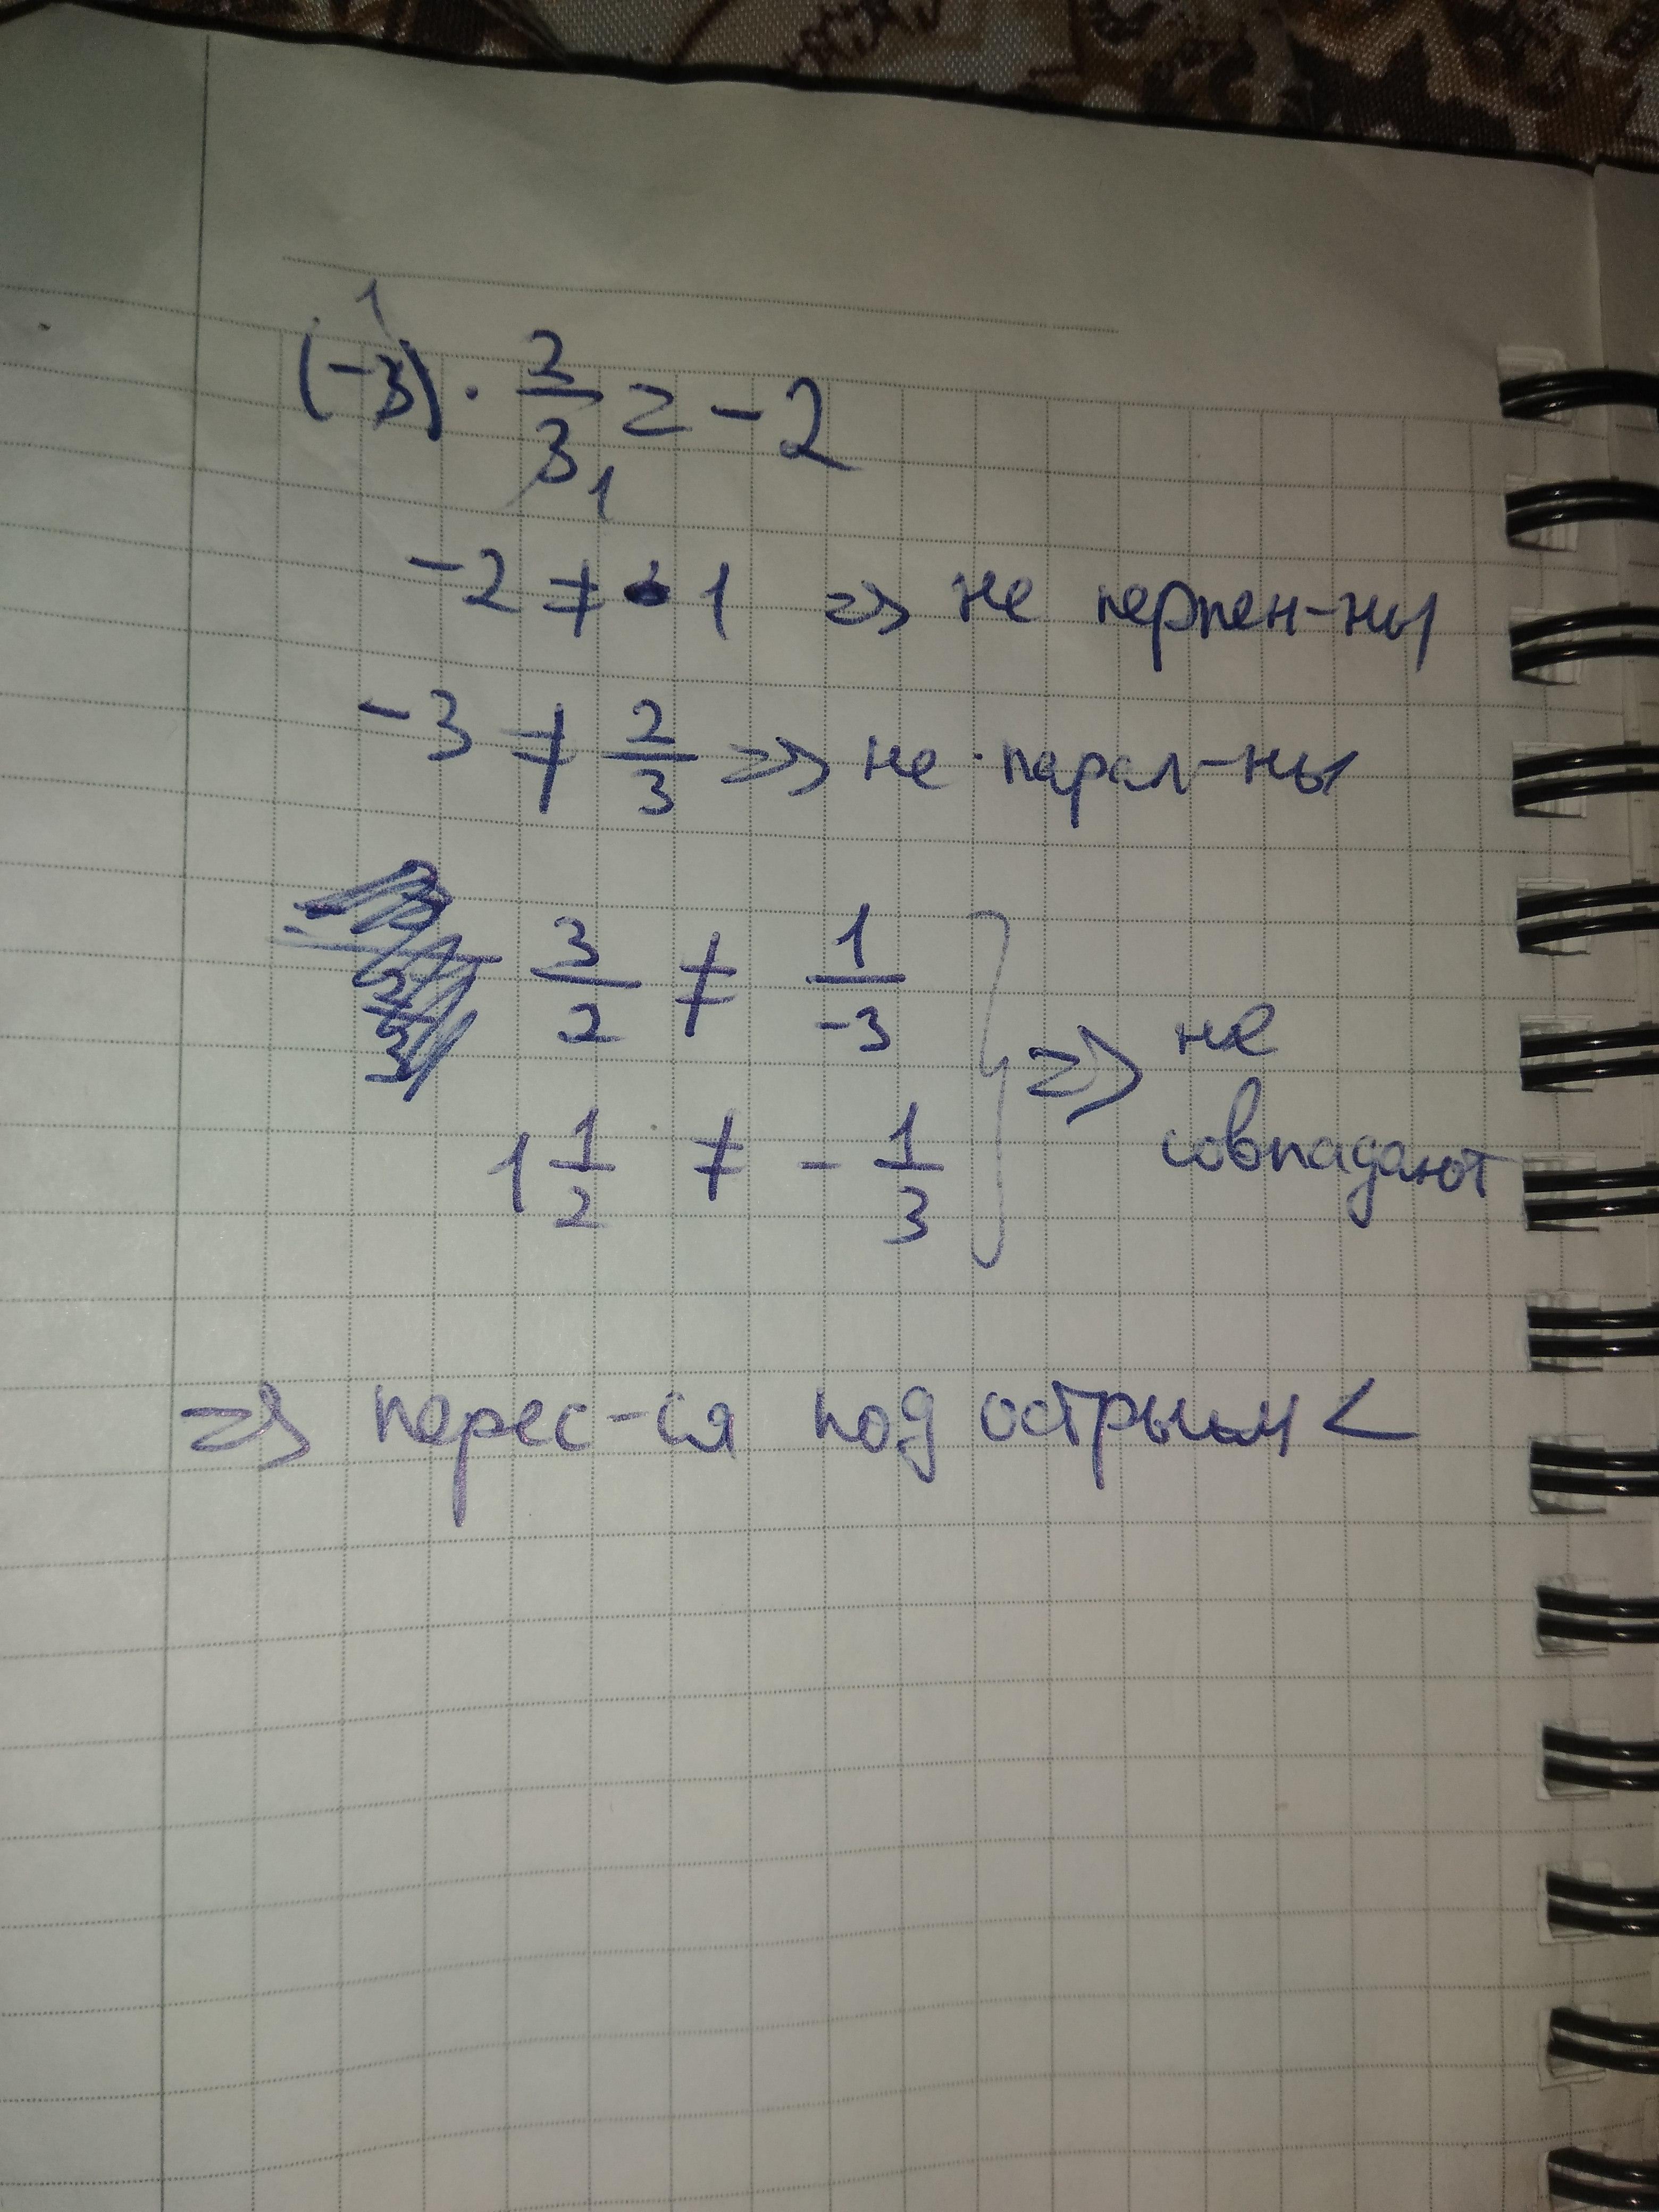 (-3) · 2/3 = -2
1
1
-2 ≠ -1 => не перпен-ны
-3 ≠ 2/3 => не парал-ны
3/2 ≠ 1/-3
1 1/2 ≠ - 1/3
} => не
совпадают
=> перес-ся под острым <